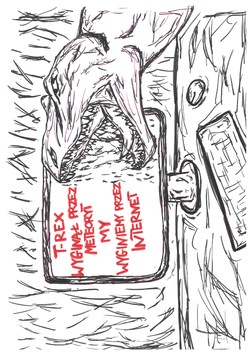 T-REX
WYGINĄŁ PRZEZ
METEORYT
MY
WYGINIEMY PRZEZ
INTERNET